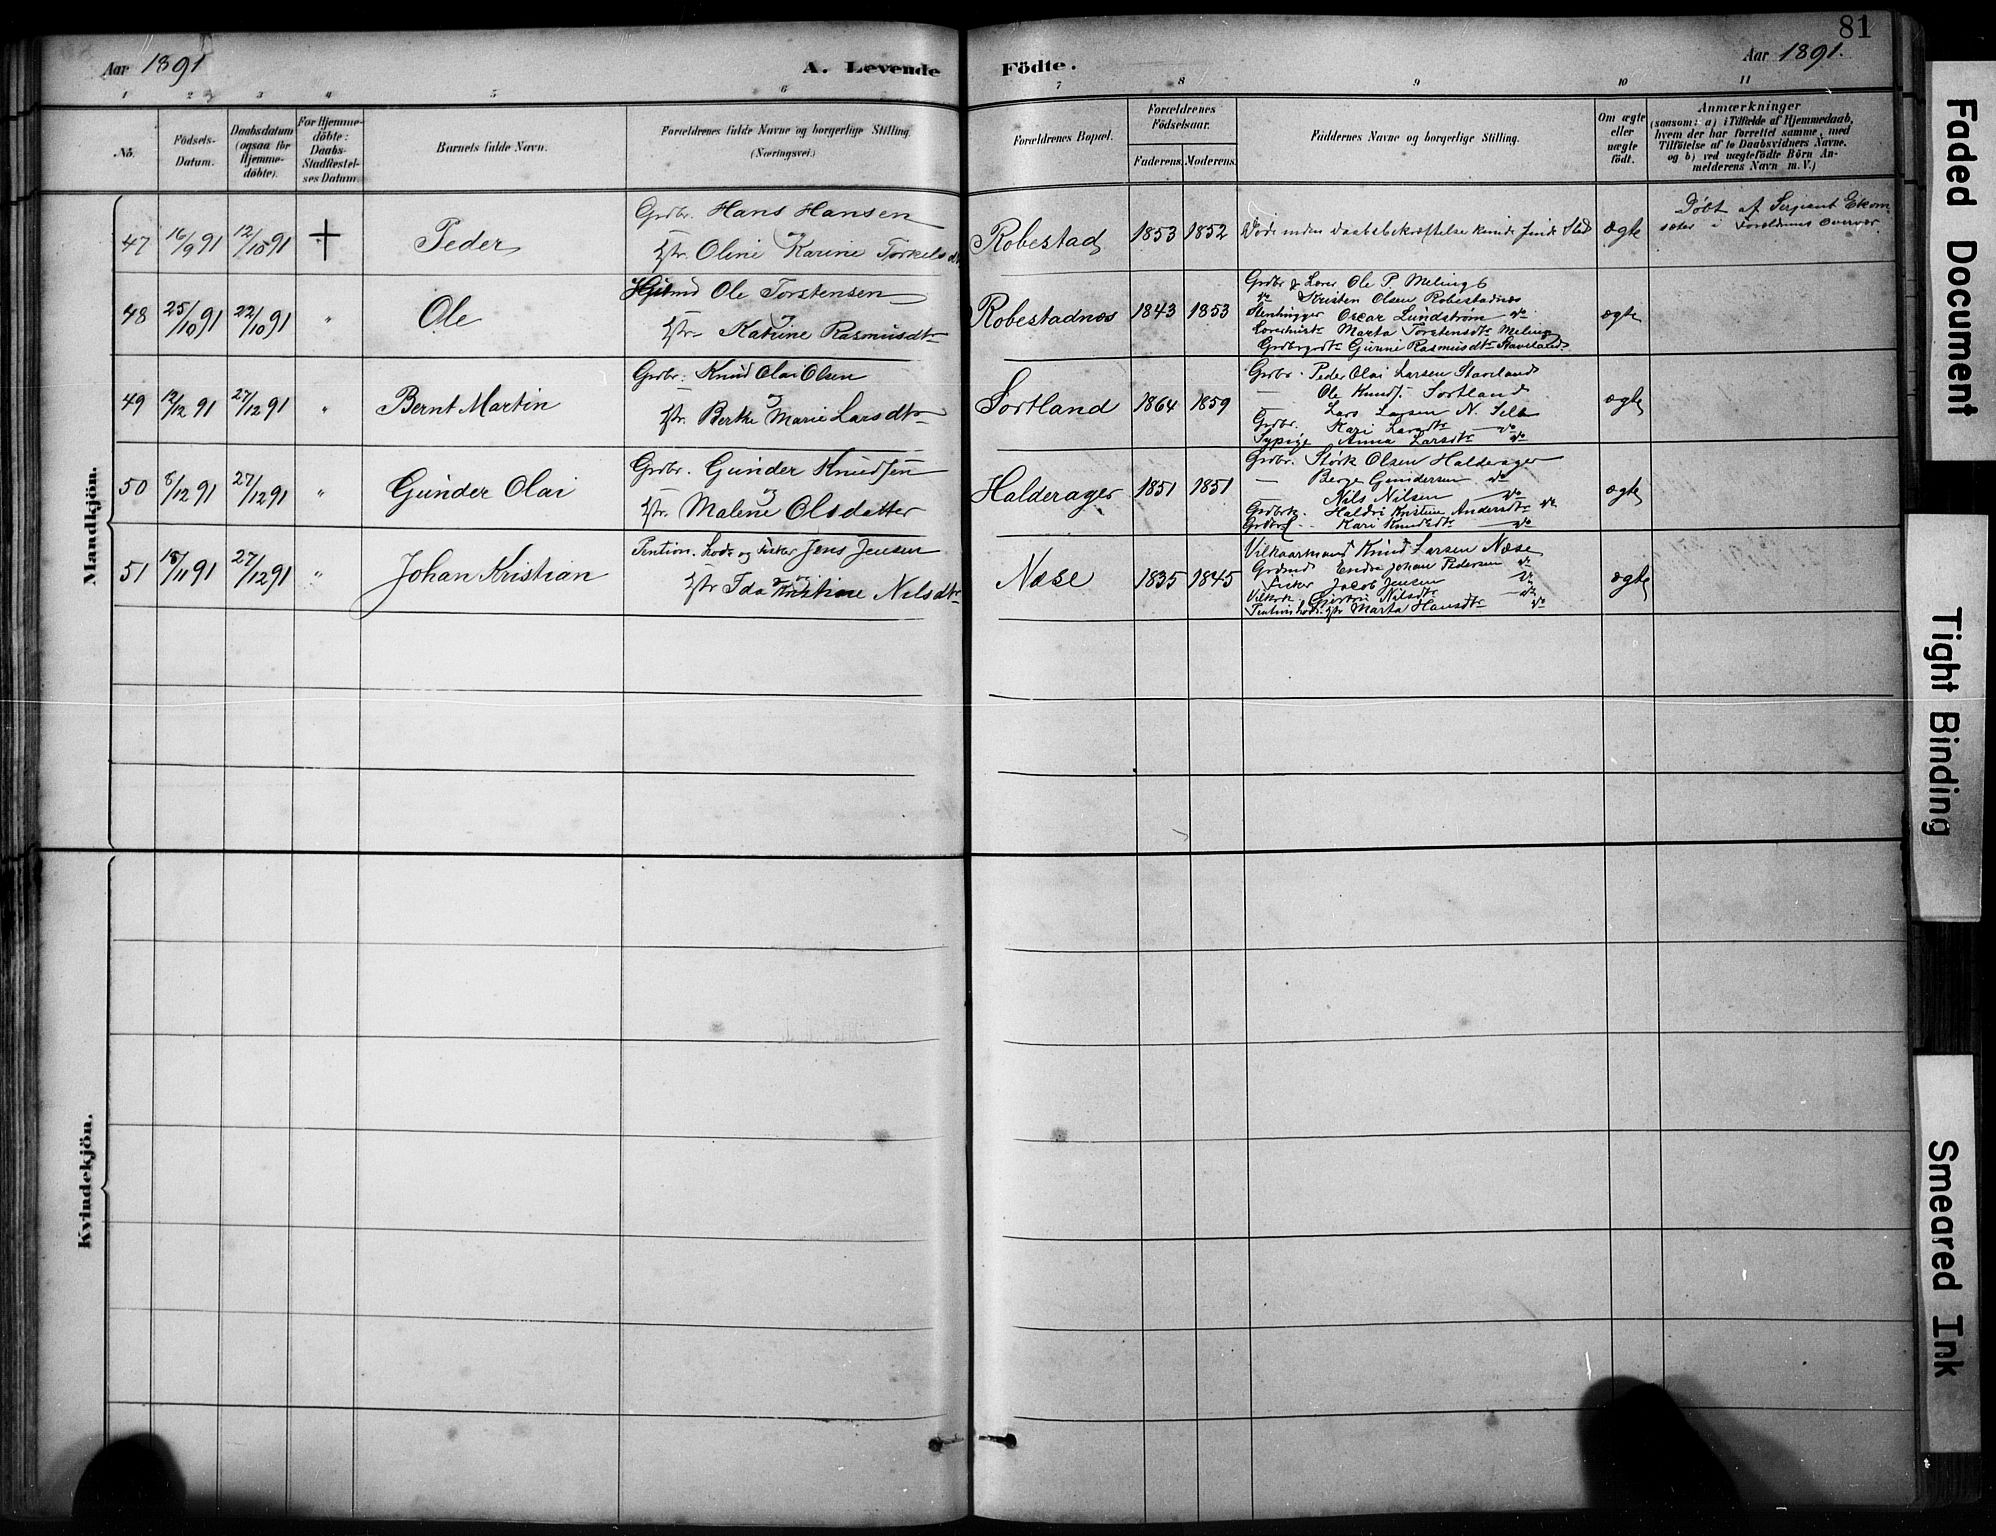 81
Aar 1891
A. Levende
Födte.
Aar 1891.
1 2 3 4 5 6 7 8 9 10 11
No.
Födsels-
Datum.
Daabsdatum
(ogsaa for
Hjemme-
döbte).
For Hjemme-
döbte:
Daabs-
Stadfæstel-
ses Datum.
Barnets fulde Navn.
Forældrenes fulde Navne og borgerlige Stilling
(Næringsvei.)
Forældrenes Bopæl.
Forældrenes
Födselsaar.
Faderens. Moderens.
Faddernes Navne og borgerlige Stilling.
Om ægte
eller
uægte
födt.
Anmærkninger
(saasom: a) i Tilfælde af Hjemmedaab,
hvem der har forrettet samme, med
Tilföielse af to Daabsvidners Navne.
og b) ved uægtefödte Börn An-
melderens Navn m.V.)
Mandkjön.
47 16/9 91 12/10 91 Peder
Grdbr. Hans Hansen
og
Hstr. Oline Karine Torkelsdt
Robestad 1853 1852
Døde inden daabsbekræftelse kunde finde Sted
ægte
Döbt af Serjeant Ekom-
sæter i Foreldrenes overvær.
48 25/10 91 22/10 91 " Ole
Ole Torstensen
og
Hstr. Katrine Rasmusdtr
Robestadnæs 1843 1853
Grdbr & Lærer Ole P. Meling
do Kristen Olsen Robestadnæs
Stenhugger Oscar Lundstrøm do
Marta Torstensdtr Meling
Gunni Rasmusdtr Staveland.
ægte
49 12/12 91 27/12 91 " Bernt Martin
Grdbr. Knud Olai Olsen
og
Hstr. Berthe Marie Larsdtr
Sortland 1864 1859
Grdbr. Peder Olai Larsen Staveland
— Ole Knuds. Sortland
— Lars Larsen N. Selö
Grdbr. Kari Larsdtr — do
Sypige Anna Larsdtr do
ægte
50 8/12 91 27/12 91 " Gunder Olai
Grdbr. Gunder Knudsen
og
Hstr. Malene Olsdatter
Halderager 1851 1851
Grdbr. Störk Olsen Halderager
— Berge Gundersen do
— Nils Nilsen — do
Grdbrk. Haldri Kristine Andersdtr do
Kari Knudsdtr — do
ægte
51 18/11 91 27/12 91 " Johan Kristian
Pention. Lods og Fisker Jens Jensen
og
Hstr Ida Kristine Nilsdtr
Næse 1835 1845
Vilkaarmand Knud Larsen Næse
Grdmd Endre Johan Pedersen do
Fisker Jacob Jensen do
Vilkrk. Gjertru Nilsdtr — do
Marta Hansdtr do
ægte
Kvindekjön.
Faded Document
Tight Binding
Smeared Ink